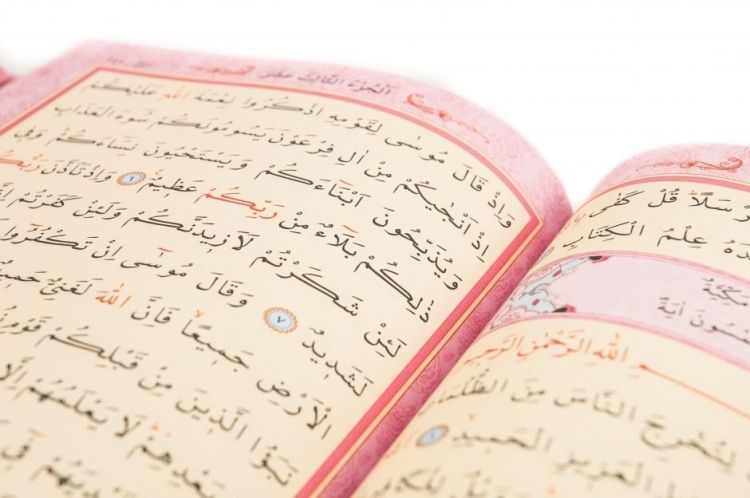 قُلْ كَفٰى
عِلْمُ الْكِتَابِ
اٰيَةً
اللهِ الرَّحْمٰنِ الرَّحِيمِ
لِتُخْرِجَ النَّاسَ مِنَ الظُّلُمَاتِ
الْعَزِيزِ الْحَمِيدِ ١
اَلْجُزْءُ الثَّالِثَ عَشَرَ
وَاِذْ قَالَ مُوسٰى لِقَوْمِهِ اذْكُرُوا نِعْمَةَ اللهِ عَلَيْكُمْ
اِذْ اَنْجٰيكُمْ مِنْ اٰلِ فِرْعَوْنَ يَسُومُونَكُمْ سُوٓءَ الْعَذَابِ
وَيُذَبِّحُونَ اَبْنَٓاءَكُمْ وَيَسْتَحْيُونَ نِسَٓاءَكُمْ وَفِي
ذٰلِكُمْ بَلَٓاءٌ مِنْ رَبِّكُمْ عَظِيمٌ ٦ وَاِذْ تَاَذَّنَ رَبُّكُمْ
لَئِنْ شَكَرْتُمْ لَاَزِيدَنَّكُمْ وَلَئِنْ كَفَرْتُمْ اِنَّ
لَشَدِيدٌ ٧ وَقَالَ مُوسٰٓى اِنْ تَكْفُرُٓوا
الْاَرْضِ جَمِيعًا فَاِنَّ اللهَ لَغَنِيٌّ حَمِيدٌ
نَبَؤُا الَّذِينَ مِنْ قَبْلِكُمْ قَوْمِ
بَعْدِهِمْ لَا يَعْلَمُهُمْ اِلَّا